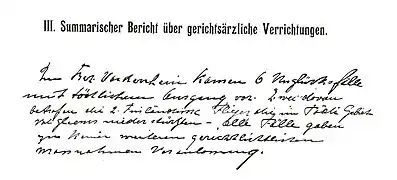 III. Summarischer Bericht über gerichtsärzliche Verrichtungen.
Im Bez. Vorderrhein kamen 6 Unglücksfälle
mit tödtlichem Ausgang vor. 2 von
betrafen die 2 die im Tödi Gebiet
Alle Fälle gaben
zu keiner weiteren gerichtlichen
massnahmen Veranlassung.